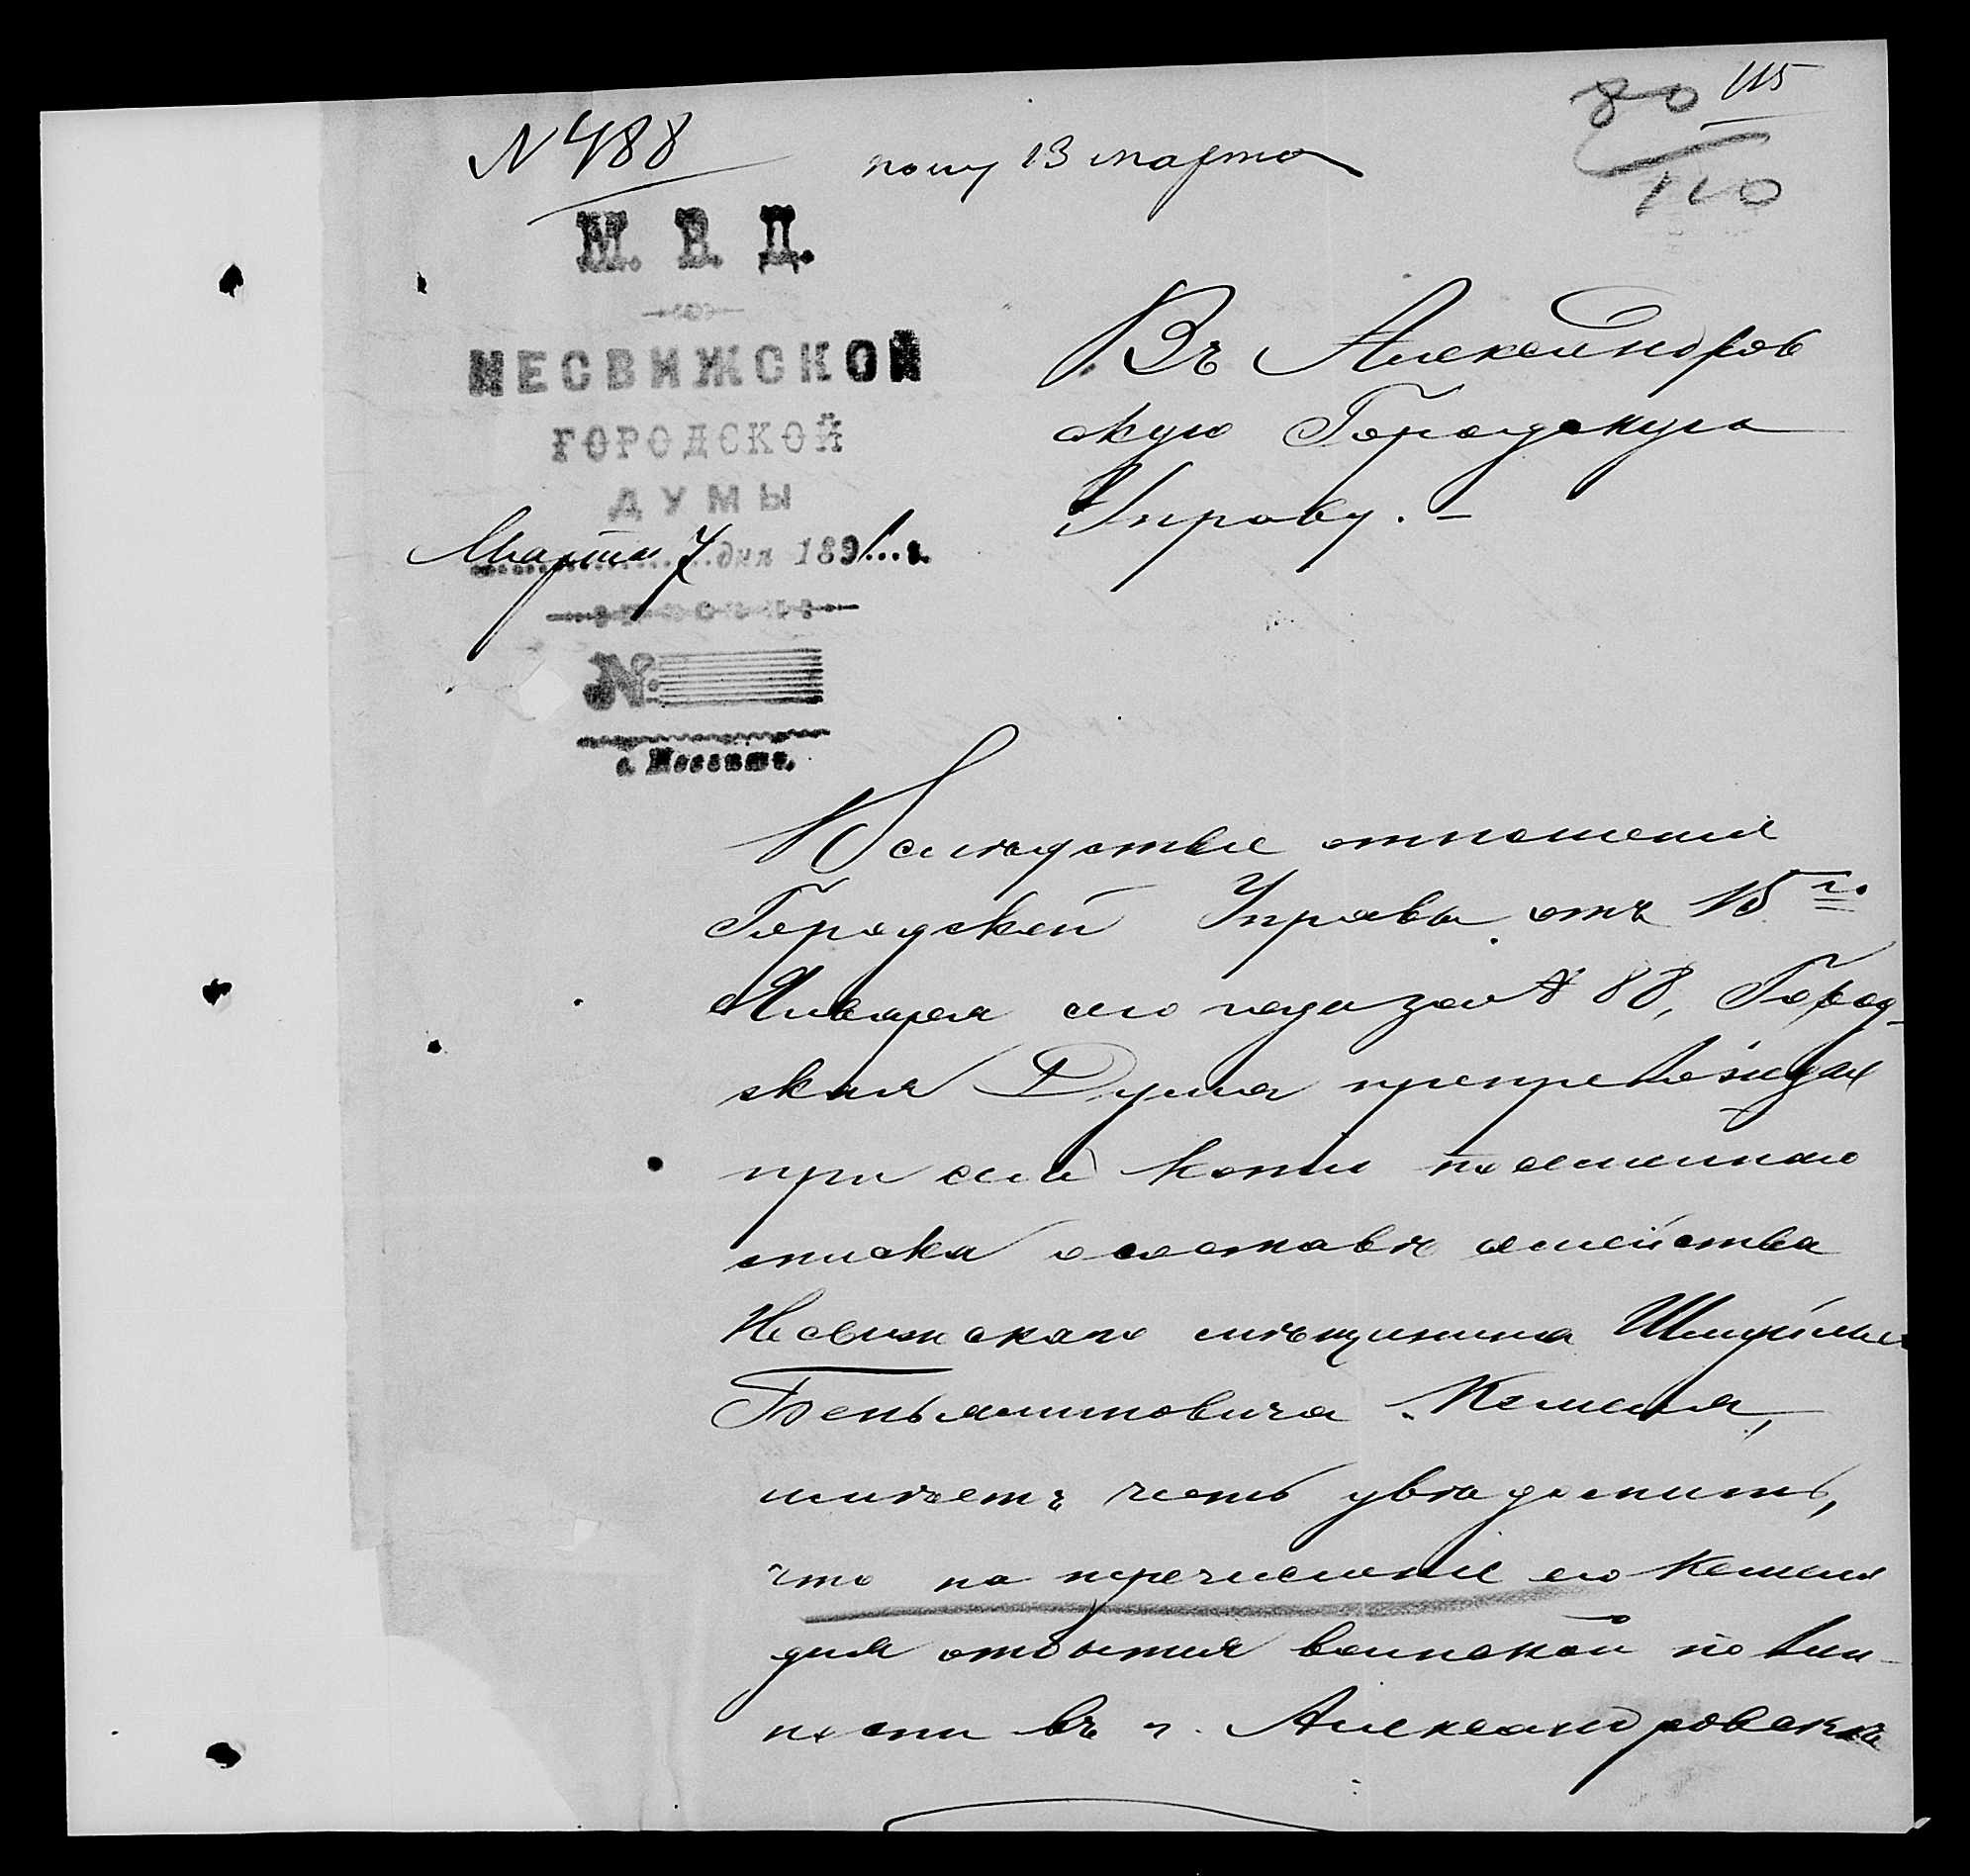 N 488
полу 13 марта
80 115
110
М. В. Д.
НЕСВИЖСКОЙ
ГОРОДСКОЙ
ДУМЫ
Марта 7 дня 1891 г.
№
г. Несвижъ.
Въ Александров
скую Городскую
Управу. –
Вслѣдствіе отношенія
Городской Управы отъ 15го
Января сего года за № 88, Город-
ская Дума препровождая
при семъ копію посемейнаго
списка о составѣ семейства
Несвижскаго мѣщанина Шмуйлы
Беньяминовича Кемеля,
имѣетъ честь увѣдомить,
что на перечисленіе его Кемеля
для отбытія воинской повин-
ности въ г. Александровскѣ